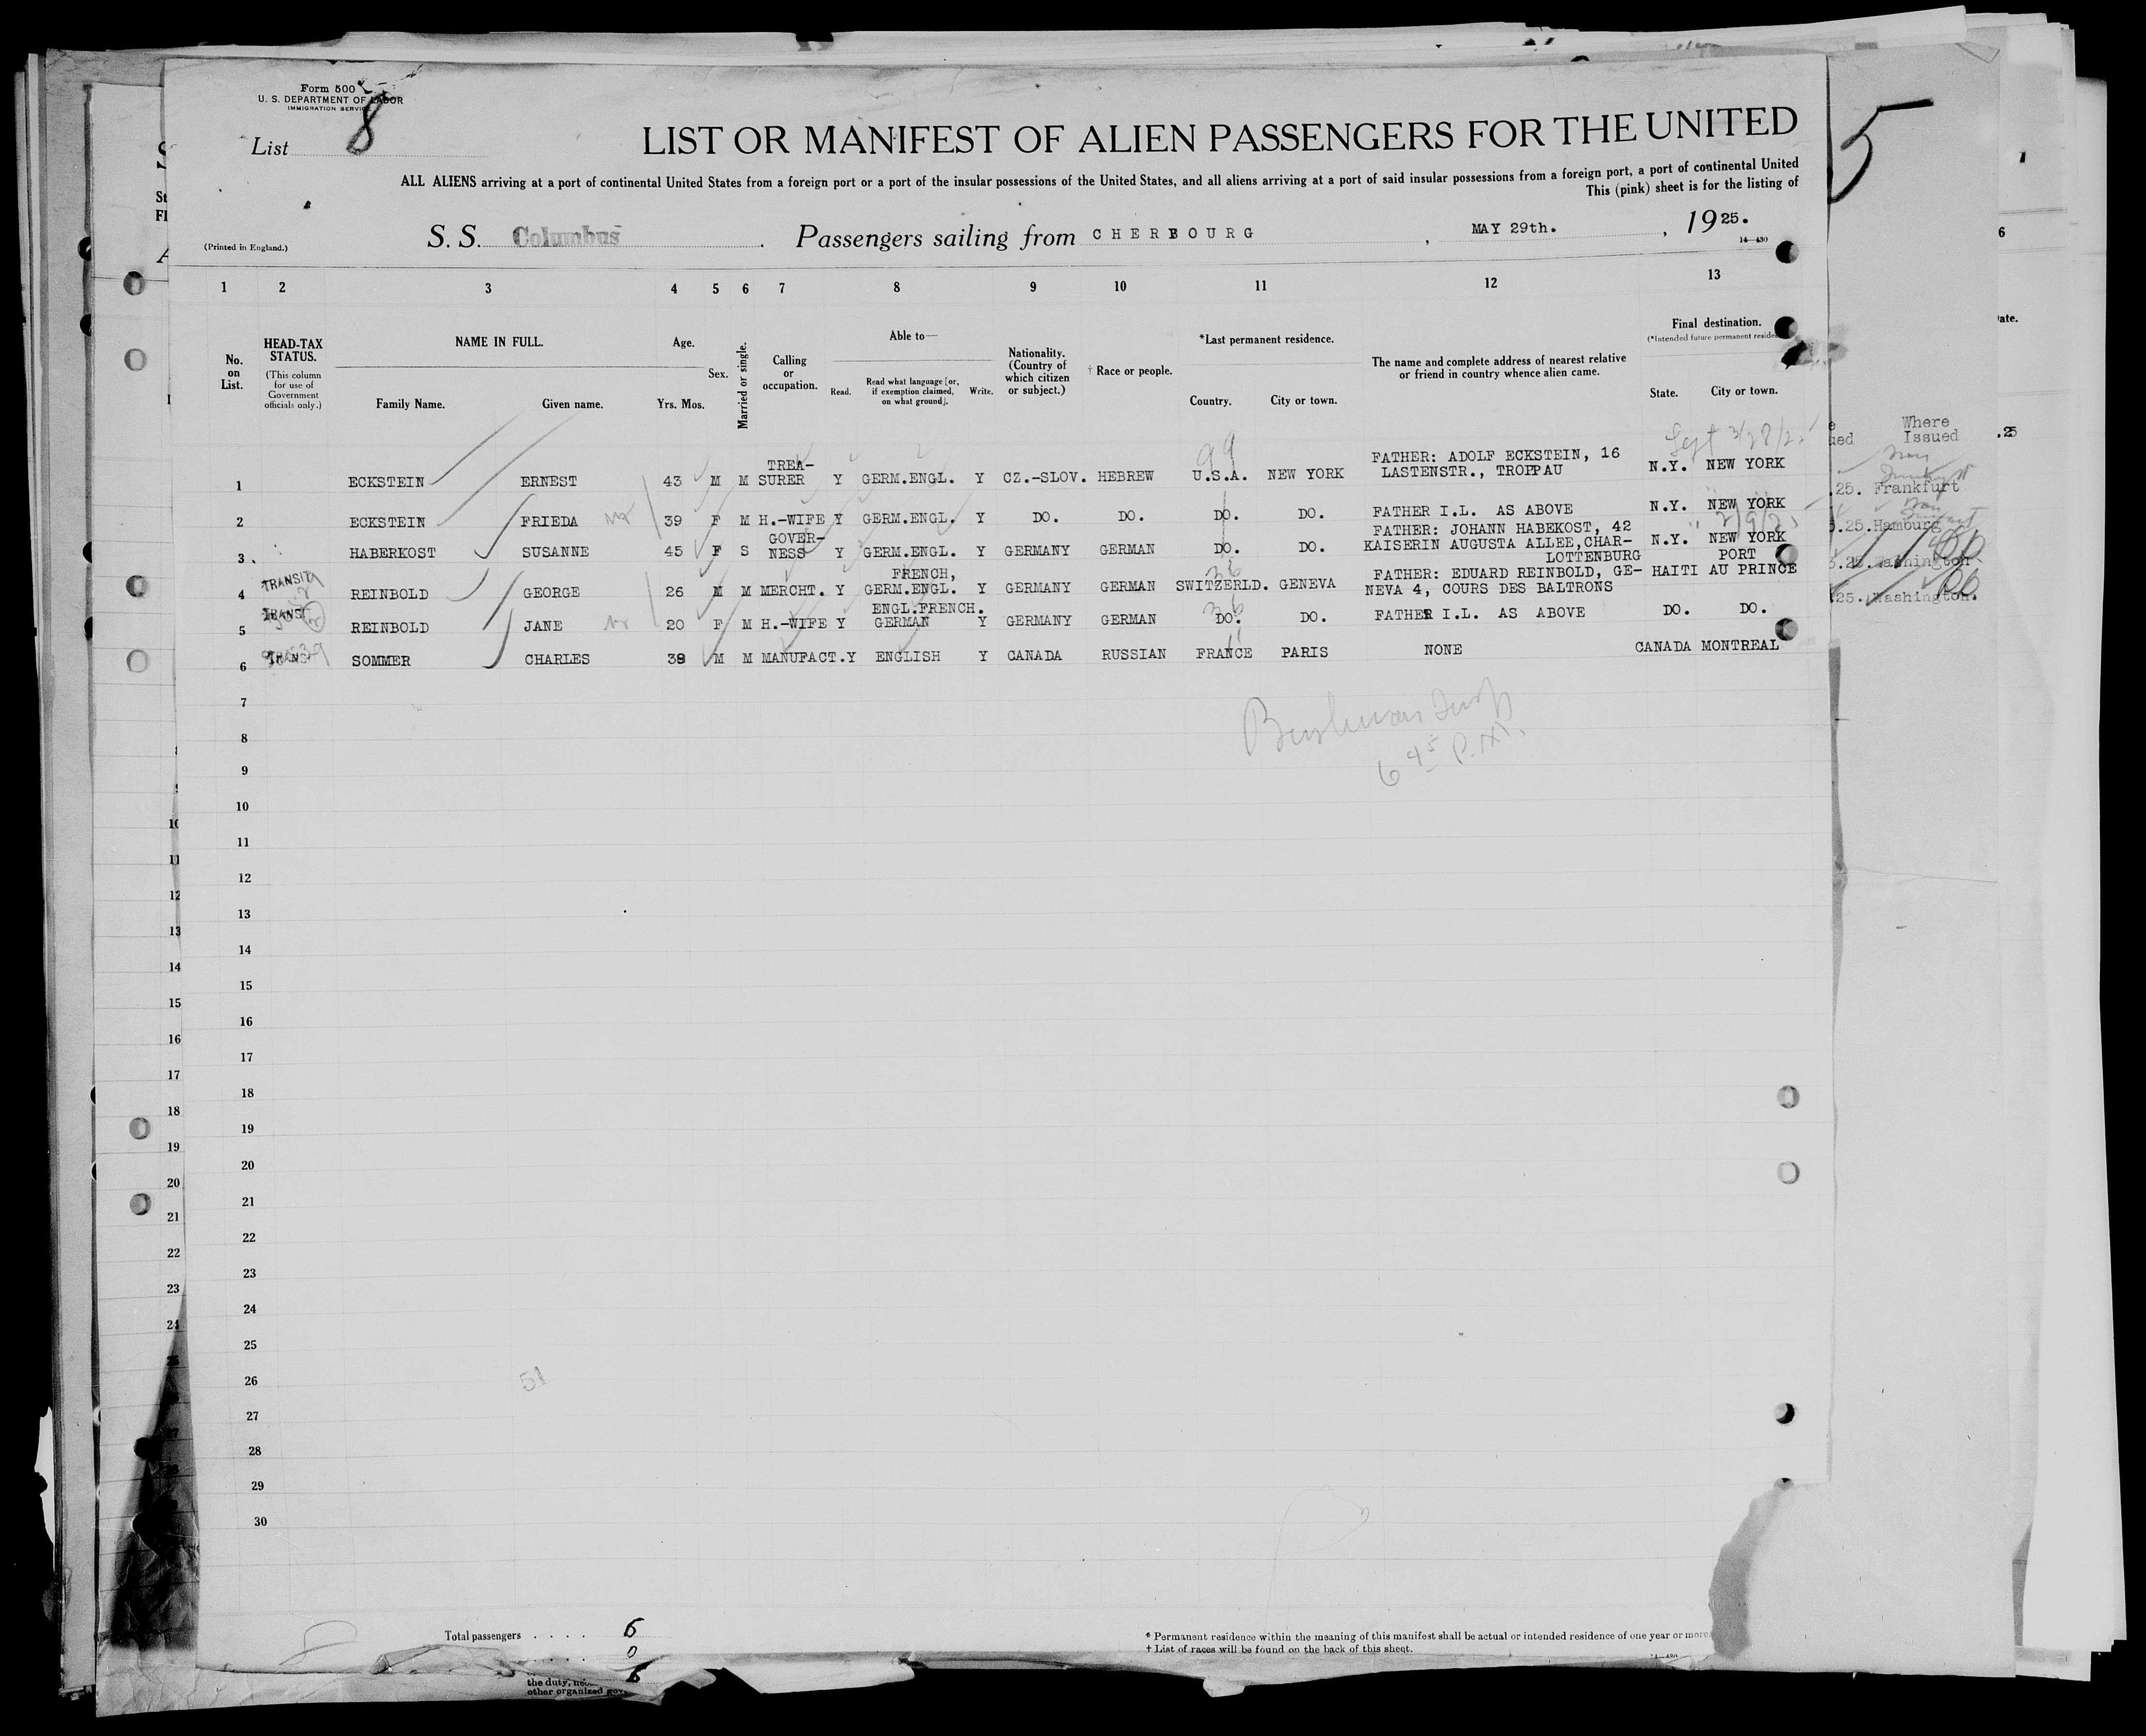 Form 500
U. S. DEPARTMENT OF LABOR
IMMIGRATION SERVICE
List 8
LIST OR MANIFEST OF ALIEN PASSENGERS FOR THE UNITED
ALL ALIENS arriving at a port of continental United States from a foreign port or a port of the insular possessions of the United States, and all aliens arriving at a port of said insular possessions from a foreign port, a port of continental United
This (pink) sheet is for the listing of
5
(Printed in England.)
S. S. Columbus. Passengers sailing from CHERBOURG, MAY 29th., 1925.
14—430
1 2 3 4 5 6 7 8 9 10 11 12 13
No. on List.
HEAD-TAX STATUS.
(This column for use of Government officials only.)
NAME IN FULL.
Family Name. Given name.
Age.
Yrs. Mos.
Sex.
Married or single.
Calling or occupation.
Able to—
Read. Read what language [or, if exemption claimed, on what ground]. Write.
Nationality. (Country of which citizen or subject.)
† Race or people.
*Last permanent residence.
Country. City or town.
The name and complete address of nearest relative or friend in country whence alien came.
Final destination.
(*Intended future permanent reside
State. City or town.
Where Issued
99
1 ECKSTEIN ERNEST 43 M M TREA-SURER Y GERM.ENGL. Y CZ.-SLOV. HEBREW U.S.A. NEW YORK FATHER: ADOLF ECKSTEIN, 16 LASTENSTR., TROPPAU N.Y. NEW YORK
.25. Frankfurt
2 ECKSTEIN FRIEDA 39 F M H.-WIFE Y GERM.ENGL. Y DO. DO. DO. DO. FATHER I.L. AS ABOVE N.Y. NEW YORK
.25. Hamburg
3 HABERKOST SUSANNE 45 F S GOVER-NESS Y GERM.ENGL. Y GERMANY GERMAN DO. DO. FATHER: JOHANN HABEKOST, 42 KAISERIN AUGUSTA ALLEE, CHAR-LOTTENBURG N.Y. NEW YORK
.25. Washington
4 TRANSIT REINBOLD GEORGE 26 M M MERCHT. Y FRENCH, GERM.ENGL. Y GERMANY GERMAN SWITZERLD. GENEVA FATHER: EDUARD REINBOLD, GE-NEVA 4, COURS DES BALTRONS HAITI PORT AU PRINCE
.25. Washington.
5 TRANSIT REINBOLD JANE 20 F M H.-WIFE Y ENGL.FRENCH. GERMAN Y GERMANY GERMAN DO. DO. FATHER I.L. AS ABOVE DO. DO.
6 SOMMER CHARLES 39 M M MANUFACT. Y ENGLISH Y CANADA RUSSIAN FRANCE PARIS NONE CANADA MONTREAL
7
8
6 45 P.M.
9
10
11
12
13
14
15
16
17
18
19
20
21
22
23
24
25
26
51
27
28
29
30
Total passengers . . . . 6
0
6
* Permanent residence within the meaning of this manifest shall be actual or intended residence of one year or more.
† List of races will be found on the back of this sheet.
the duty,
other organized